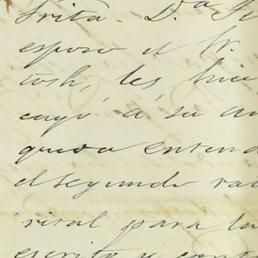 Srita. D.ª
esposo el Sr.
tosh, les hice
cayó a su
queda entend
el segundo
risal para la
escrito y cont